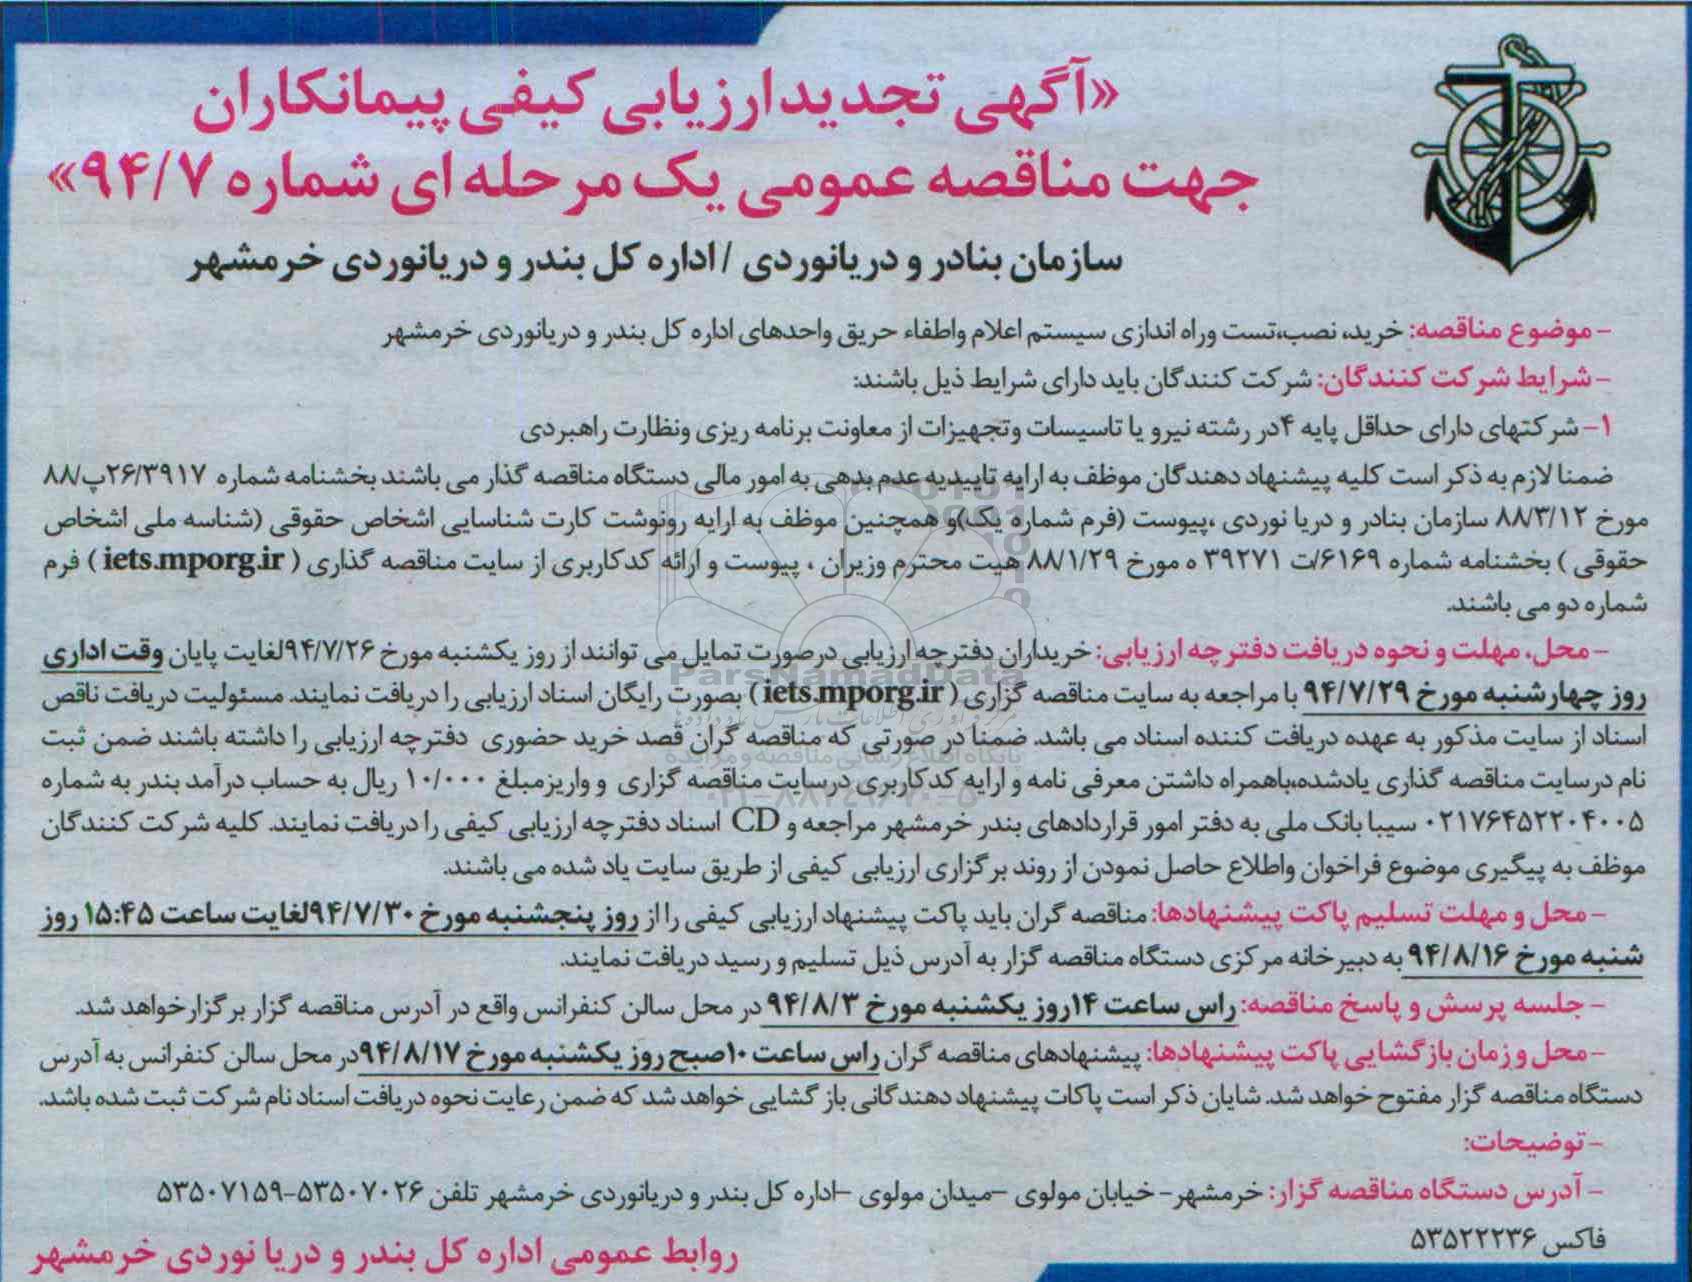 «آگهی تجدید ارزیابی کیفی پیمانکاران
جهت مناقصه عمومی یک مرحله ای شماره ۹۴/۷»
سازمان بنادر و دریانوردی / اداره کل بندر و دریانوردی خرمشهر
- موضوع مناقصه: خرید، نصب،تست وراه اندازی سیستم اعلام واطفاء حریق واحدهای اداره کل بندر و دریانوردی خرمشهر
- شرایط شرکت کنندگان: شرکت کنندگان باید دارای شرایط ذیل باشند:
۱- شرکتهای دارای حداقل پایه ۴در رشته نیرو یا تاسیسات وتجهیزات از معاونت برنامه ریزی ونظارت راهبردی
ضمنا لازم به ذکر است کلیه پیشنهاد دهندگان موظف به ارایه تاییدیه عدم بدهی به امور مالی دستگاه مناقصه گذار می باشند بخشنامه شماره ۲۶/۳۹۱۷پ/۸۸
مورخ ۸۸/۳/۱۲ سازمان بنادر و دریا نوردی ،پیوست (فرم شماره یک)و همچنین موظف به ارایه رونوشت کارت شناسایی اشخاص حقوقی (شناسه ملی اشخاص
حقوقی ) بخشنامه شماره ۶۱۶۹/ت ۳۹۲۷۱ ه مورخ ۸۸/۱/۲۹ هیت محترم وزیران ، پیوست و ارائه کدکاربری از سایت مناقصه گذاری ( iets.mporg.ir ) فرم
شماره دو می باشند.
- محل، مهلت و نحوه دریافت دفترچه ارزیابی: خریداران دفترچه ارزیابی درصورت تمایل می توانند از روز یکشنبه مورخ ۹۴/۷/۲۶لغایت پایان وقت اداری
روز چهارشنبه مورخ ۹۴/۷/۲۹ با مراجعه به سایت مناقصه گزاری ( iets.mporg.ir ) بصورت رایگان اسناد ارزیابی را دریافت نمایند. مسئولیت دریافت ناقص
اسناد از سایت مذکور به عهده دریافت کننده اسناد می باشد. ضمنا در صورتی که مناقصه گران قصد خرید حضوری دفترچه ارزیابی را داشته باشند ضمن ثبت
نام درسایت مناقصه گذاری یادشده،باهمراه داشتن معرفی نامه و ارایه کدکاربری درسایت مناقصه گزاری و واریزمبلغ ۱۰/۰۰۰ ریال به حساب درآمد بندر به شماره
۰۲۱۷۶۴۵۲۲۰۴۰۰۵ سیبا بانک ملی به دفتر امور قراردادهای بندر خرمشهر مراجعه و CD اسناد دفترچه ارزیابی کیفی را دریافت نمایند. کلیه شرکت کنندگان
موظف به پیگیری موضوع فراخوان واطلاع حاصل نمودن از روند برگزاری ارزیابی کیفی از طریق سایت یاد شده می باشند.
- محل و مهلت تسلیم پاکت پیشنهادها: مناقصه گران باید پاکت پیشنهاد ارزیابی کیفی را از روز پنجشنبه مورخ ۹۴/۷/۳۰لغایت ساعت ۱۵:۴۵ روز
شنبه مورخ ۹۴/۸/۱۶ به دبیرخانه مرکزی دستگاه مناقصه گزار به آدرس ذیل تسلیم و رسید دریافت نمایند.
- جلسه پرسش و پاسخ مناقصه: راس ساعت ۱۴روز یکشنبه مورخ ۹۴/۸/۳ در محل سالن کنفرانس واقع در آدرس مناقصه گزار برگزارخواهد شد.
- محل و زمان بازگشایی پاکت پیشنهادها: پیشنهادهای مناقصه گران راس ساعت ۱۰صبح روز یکشنبه مورخ ۹۴/۸/۱۷در محل سالن کنفرانس به آدرس
دستگاه مناقصه گزار مفتوح خواهد شد. شایان ذکر است پاکات پیشنهاد دهندگانی باز گشایی خواهد شد که ضمن رعایت نحوه دریافت اسناد نام شرکت ثبت شده باشد.
- توضیحات:
- آدرس دستگاه مناقصه گزار: خرمشهر- خیابان مولوی -میدان مولوی -اداره کل بندر و دریانوردی خرمشهر تلفن ۵۳۵۰۷۰۲۶-۵۳۵۰۷۱۵۹
فاکس ۵۳۵۲۲۲۳۶
روابط عمومی اداره کل بندر و دریا نوردی خرمشهر
ParsNamadData
پایگاه اطلاع رسانی مناقصه و مزایده